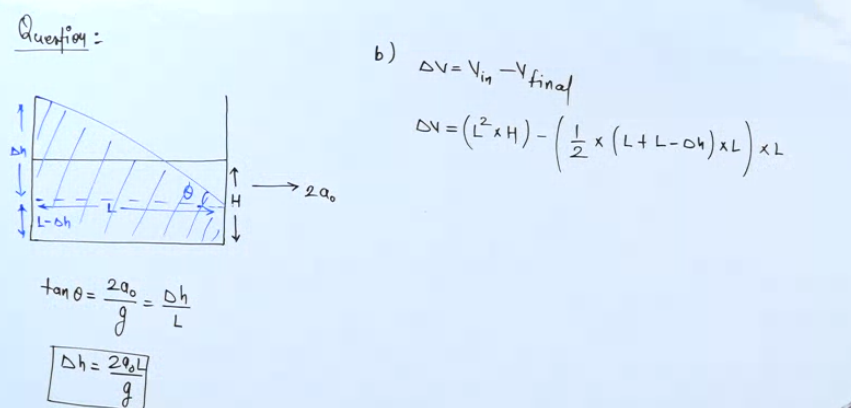 Question :
Δh
L-Δh
L
θ
H
2a₀
tan θ = 2a₀/g = Δh/L
Δh = 2a₀L/g
b)
ΔV = V_in - V_final
ΔV = (L² × H) - (1/2 × (L + L - Δh) × L) × L